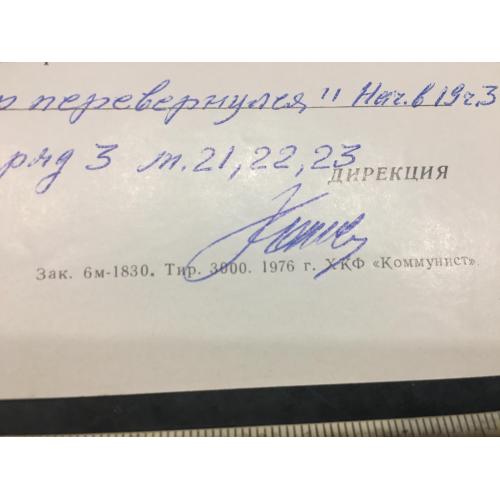 р перевернулся" Нач. в 19 ч. 3
ряд 3 м. 21, 22, 23
ДИРЕКЦИЯ
Зак. 6м-1830. Тир. 3000. 1976 г. ХКФ «Коммунист».